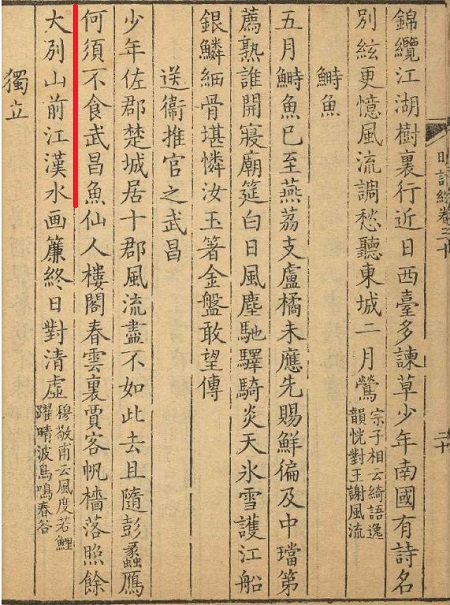 二十
錦纜江湖樹裏行近日西臺多諫草少年南國有詩名
別絃更憶風流調愁聽東城二月鶯
宗子相云綺語逸
韻恍對王謝風流
鰣魚
五月鰣魚已至燕荔支盧橘未應先賜鮮偏及中璫第
薦熟誰開寢廟筵白日風塵馳驛騎炎天氷雪護江船
銀鱗細骨堪憐汝玉箸金盤敢望傳
送衞推官之武昌
少年佐郡楚城居十郡風流盡不如此去且隨彭蠡鴈
何須不食武昌魚仙人樓閣春雲裏賈客帆檣落照餘
大別山前江漢水画簾終日對清虛
穆敬甫云風度若鯉
躍晴波鳥鳴春谷
獨立